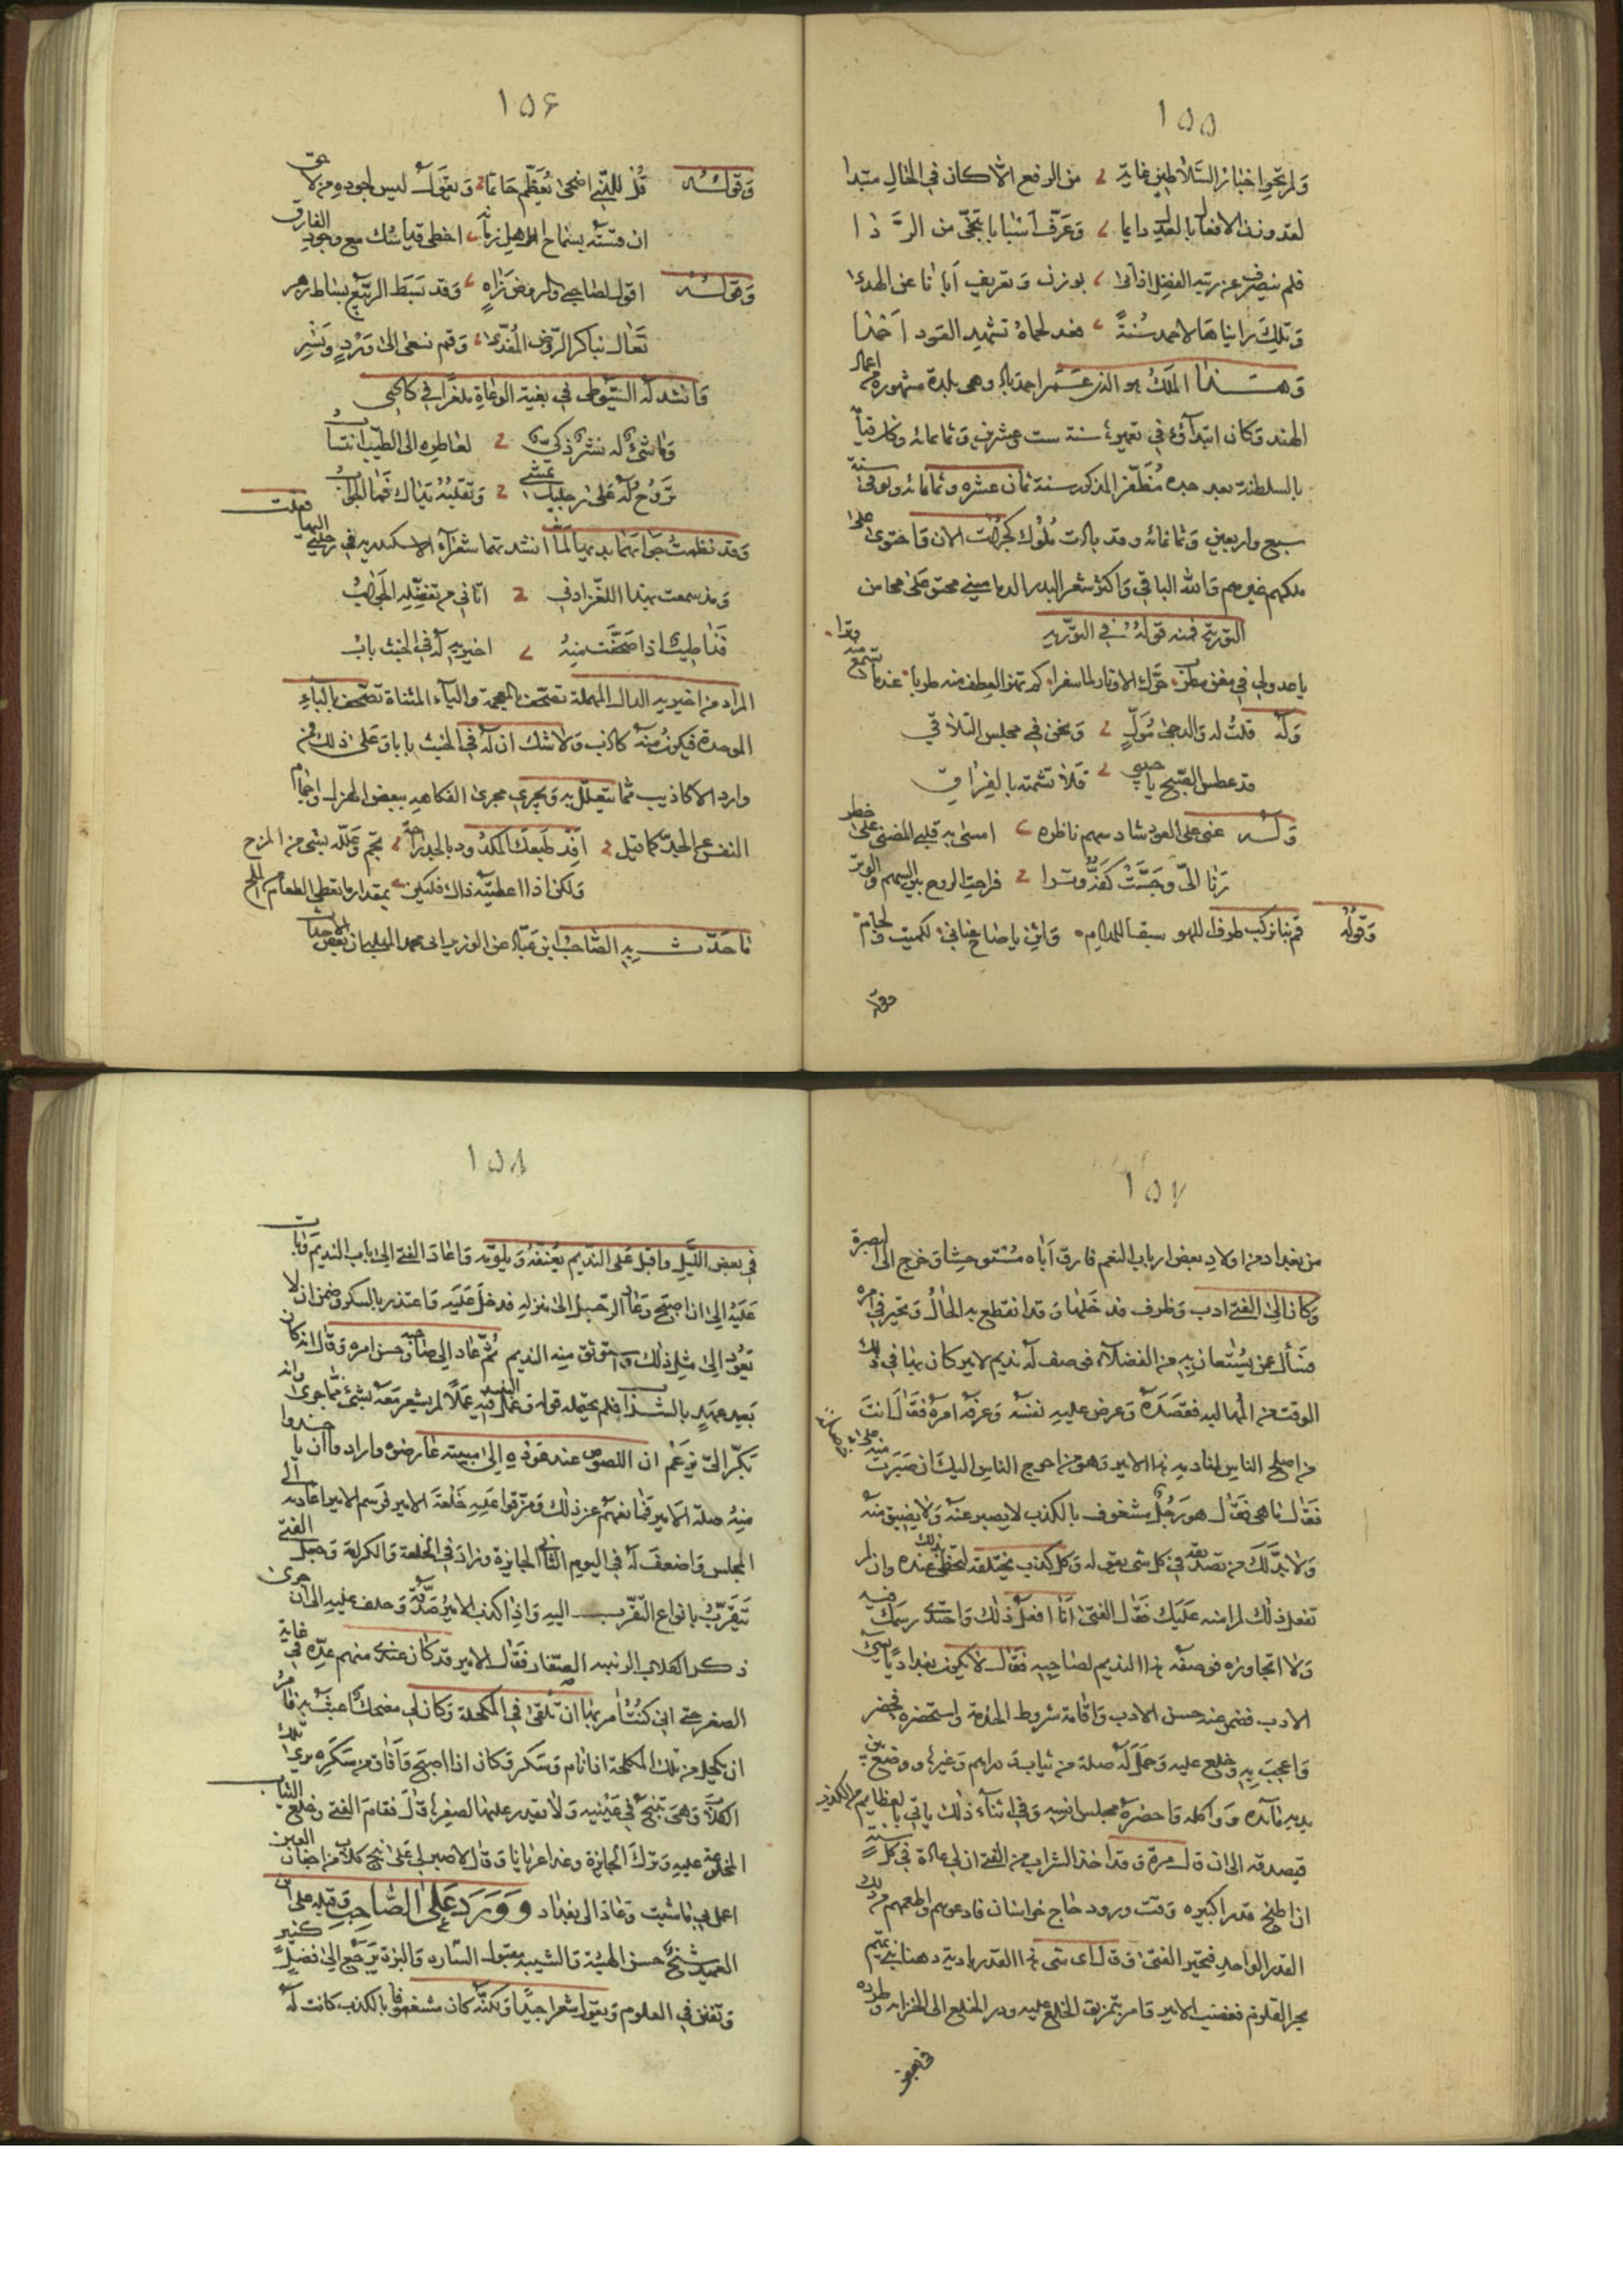 ١٥٥
ولم تحو اخبار السلاطين غاية من الرفع الا كان في الحال مبتدا
لقد وزن الافعال بالعدل دايما وعرف اسبابا تنحى من الردا
فلم ينصرف عن رتبة الفضل اذ اتى بوزن وتعريف ابانا عن الهدى
وتلك مزايا هالاحمد سنة فغد لحماه تشهد العود احمدا
وهذا الملك هو الذي عمر احمداباد وهي بلدة مشهورة من اعمال
الهند وكان ابتداؤه في تعميره سنة ست وعشرين وثمانمائه وكان قيامه
بالسلطنة بعد جده مظفر المذكور سنة ثمان عشره وثمانمائه وتوفى سنة
سبع واربعين وثمانمائه وقد بادت ملوك كجرات الان واحتوى على
ملكهم غيرهم والله الباقي واكثر شعر البدر الدماميني محتو على محاسن
التورية فمنه قوله في التورية
يا عذولي في مغن مطرب حرك الاوتار لما سفرا كم تهز العطف منه طربا عندما تسمع منه وترا
وله قلت له والدجى مول ونحن في مجلس التلاقي
قد عطس الصبح يا حبيبي فلا تشمته بالفراق
وله غنى على العود شاد سهم ناظره امسى به قلبي المضنى على خطر
رنا الي وجست كفه وترا فراحت الروح بين السهم والوتر
وقوله قم بنا نركب طرف اللهو سبقا للمدام واثن يا صاح عناني لكميت ولجام
وقوله
١٥٦
وقوله قل للذي اضحى يعظم حاتما ويقول ليس لجوده من لاحق
ان قسته بسماح اهل زماننا اخطى قياسك مع وجود الفارق
وقوله اقول لصاحبي والروض زاه وقد بسط الربيع بساط زهر
تعال نباكر الروض المفدى وقم نسعى الى ورد ونسر
وانشد له السيوطي في بغية الوعاة ملغزا في كاذي
وما شيء له نشر ذكي لعاطره الى الطيب انتساب
تروح له على رجليك تمشي وتقلبه يداك فما الجواب
وقد نظمت جوابهما بديها لما انشدتهما شعراء الاسكندريه في رحلتي اليها فقلت
ومذ سمعت بهذا اللغز اذني اتاني من تفضله الجواب
فذا طيب اذا صحفت منه اخيريه له في الخبث باب
المراد من اخيريه الدال المهملة تصحف بالمعجمة والياء المثناة تصحف بالباء
الموحدة فيكون منه كاذب ولا شك ان له في الخبث بابا وعلى ذلك فمن
وارد الاكاذيب مما يتعلل به ويجري مجرى الفكاهه ببعض الهزل واجمام
النفس عن الجد كما قيل افد طبعك المكدود بالجد راحة يجم وعلله بشي من المزح
ولكن اذا اعطيته ذاك فليكن بمقدار ما تعطي الطعام من الملح
ما حدث به الصاحب ابن عباد عن الوزير ابى محمد المهلبي ان بعض الاحداث
١٥٧
من بغداد من اولاد بعض ارباب النعم فارق اباه مستوحشا وخرج الى البصرة
وكان الى الفتى ادب وظرف قد خلها وقد انقطع به الحال وتحير في امره
فسأل عمن يستعان به من الفضلاء فوصف له نديم لامير كان بها في ذلك
الوقت من المهالبه فقصده وعرض عليه نفسه وعرفه امره فقال انت
من اصلح الناس لمنادمة هذا الامير وهو من احوج الناس اليك ان صبرت منه على خصلة
فقال ما هي فقال هو رجل مشغوف بالكذب لا يصبر عنه ولا يفيق منه
ولا بد لك من تصديقه في كل شى يقوله وكل كذب يختلقه لتحظى بذلك عنده وان لم
تفعل ذلك لم امنه عليك فقال الفتى انا افعل ذلك واحتذي رسمك فيه
ولا اتجاوزه فوصفه هذا النديم لصاحبه فقال لا يكون بغداديا سيئ
الادب فضمن عنه حسن الادب واقامة شروط الخدمة واستحضره فحضر
واعجب به وخلع عليه وحمل له صلة من ثياب ودراهم وغيرها ووضع بين
يديه مائده وواكله واحضره مجلس انسه وفي اثناء ذلك ياتي بالعظايم من الكذب
فيصدقه الى ان قال مرة وقد اخذ الشراب من الفتى ان لي عادة في كل سنة
ان اطبخ قدرا كبيره وقت ورود حاج خراسان فادعوهم واطعمهم من تلك
القدر الواحد فتحير الفتى وقال اى شى هذا القدر بادية دهنا بني تميم
بحر القلزم فغضب الامير وامر بتمزيق الخلع عليه ورد الخلع الى الخزانه وطرده
في بعض
١٥٨
في بعض الليل واقبل على النديم يعنفه ويلومه واعاد الفتى الى باب النديم وبات
عليه الى ان اصبح وعاد الرجل الى منزله فدخل عليه واعتذر بالسكر وضمن ان لا
يعود الى مثل ذلك واستوثق منه النديم ثم عاد الى صاحبه وحسن امره وقال انه كان
بعيد عهد بالشراب فلم يحتمله قواه وعمل فيه النبيذ عملا لم يشعر معه بشئ مما جرى وانه
بكر الي فزعم ان اللصوص عند عوده الى مبيته عارضوه وارادوا ان ياخذوا
منه صلة الامير فمانعهم عن ذلك ومزقوا عليه خلعة الامير فرسم الامير اعادته الى
المجلس واضعف له في اليوم الثاني الجايزة وزاد في الخلعة والكرامة وجعل الفتى
يتقرب بانواع التقرب اليه واذا كذب الامير صدقه وحلف عليه الى ان جرى
ذكر الكلاب الزينيه الصغار فقال الامير قد كان عندي منهم عدة في غاية
الصغر حتى انى كنت امر بها ان تلقى في المكحلة وكان لي مضحك اعبث به فامر
ان يكحل من تلك المكحلة اذا نام وسكر وكان اذا اصبح وافاق من سكره يرى تلك
الكلاب وهي تنبح في عينيه ولا يقدر عليها الصغرها قال فقام الفتى وخلع الثياب
المخلوعة عليه وترك الجايزة وغدا عريانا وقال لا صبر لي على نبح كلاب من اجفان العين
اعمل بي ما شيت وعاد الى بغداد وورد على الصاحب وقيل على ابن
العميد شيخ حسن الهيئة والشيبه مقبول الشاره والبزة يرجع الى فضل كثير
وتفنن في العلوم ويقول شعرا جيدا ولكنه كان مشغوفا بالكذب كانت له